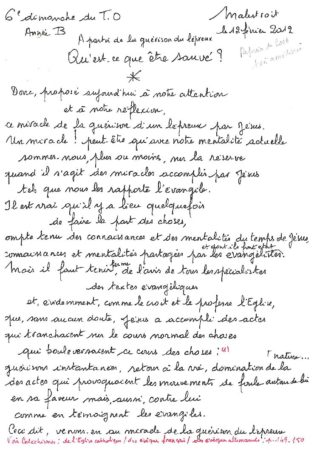 6e dimanche du T.O
Malestroit
Année B
le 12 février 2012
A partir de la guérison du lépreux
Qu'est-ce que être sauvé ?
Donc, proposé aujourd'hui à notre attention
et à notre réflexion,
ce miracle de la guérison d'un lépreux par Jésus.
Un miracle ! peut être qu'avec notre mentalité actuelle
sommes-nous plus ou moins, sur la réserve
quand il s'agit des miracles accomplis par Jésus
tels que nous les rapporte l'évangile.
Il est vrai qu'il y a lieu quelquefois
de faire la part des choses,
compte tenu des connaissances et des mentalités du temps de Jésus,
connaissances et mentalités partagées par les évangélistes.
Mais il faut tenir, ferme de l'avis de tous les spécialistes
des textes évangéliques
et, évidemment, comme le croit et le professe l'Eglise,
que, sans aucun doute, Jésus a accompli des actes
qui tranchaient sur le cours normal des choses
qui bouleversaient ce cours des choses :
nature...
guérisons instantanées, retour à la vie, domination de la
des actes qui provoquaient les mouvements de foule autour de lui
en sa faveur mais aussi, contre lui
comme en témoignent les évangiles.
Ceci dit, venons-en au miracle de la guérison du lépreux
Voir Catéchismes : de l'Eglise catholique / des évêques français / des évêques allemands : p. 149.150